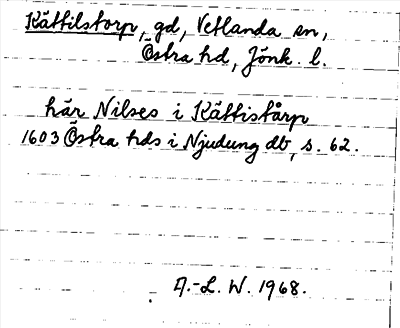 Kättilstorp, gd, Vetlanda sn,
Östra hd, Jönk. l.
här Nilses i Kättistårp
1603 Östra hds i Njudung db, s. 62.
A.-L. W. 1968.